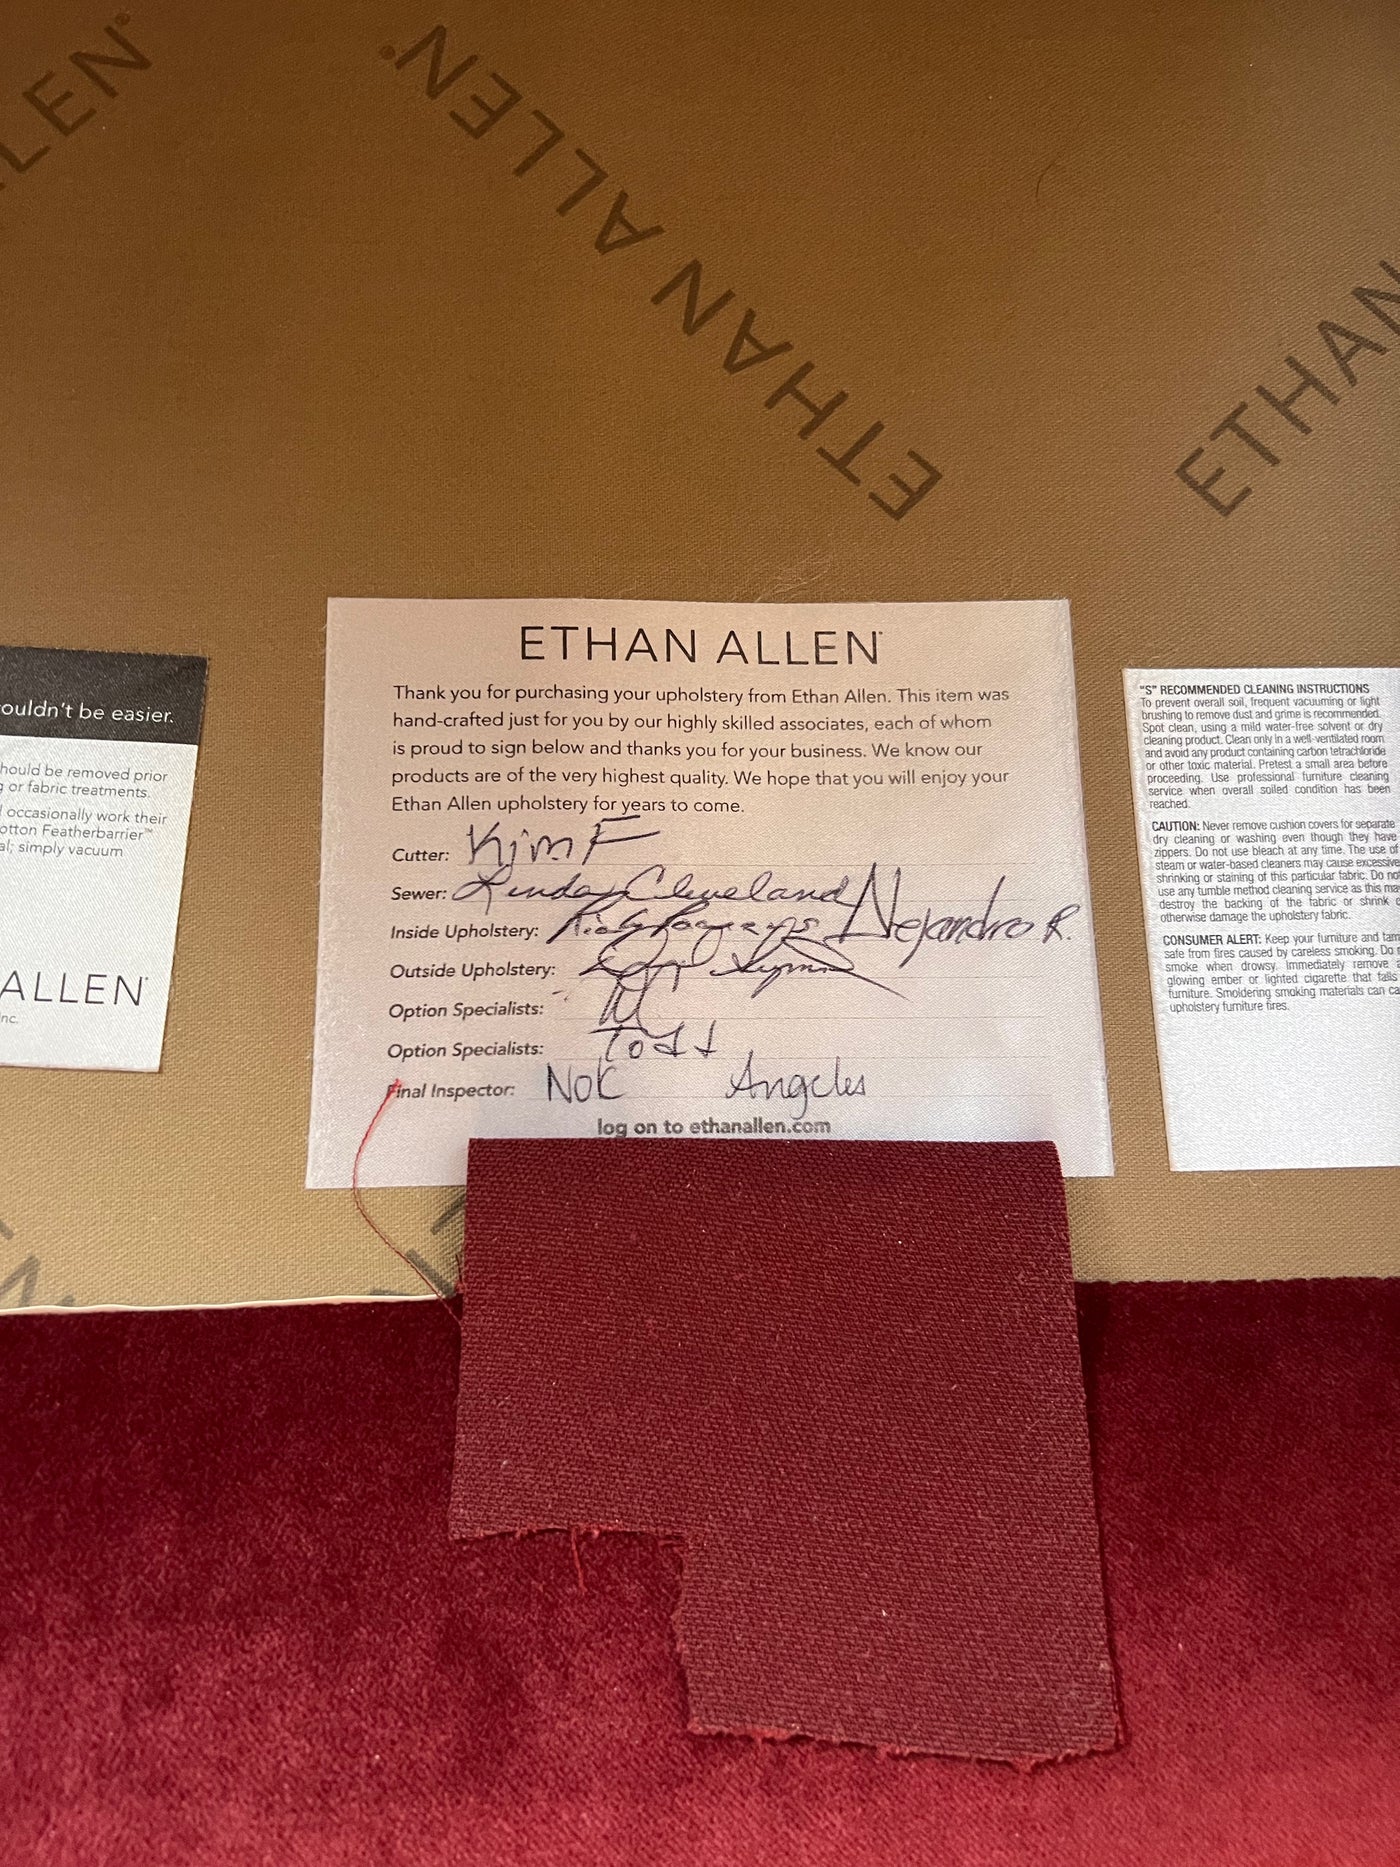 LLEN
ETHAN ALLEN®
ETHAN
ouldn't be easier.
hould be removed prior
g or fabric treatments.
l occasionally work their
otton Featherbarrier™
al; simply vacuum
ALLEN®
nc.
ETHAN ALLEN®
Thank you for purchasing your upholstery from Ethan Allen. This item was
hand-crafted just for you by our highly skilled associates, each of whom
is proud to sign below and thanks you for your business. We know our
products are of the very highest quality. We hope that you will enjoy your
Ethan Allen upholstery for years to come.
Cutter: Kim F
Sewer: Linda Cleveland
Inside Upholstery: Alejandro R.
Outside Upholstery:
Option Specialists:
Option Specialists: Todd
Final Inspector: NOK Angeles
log on to ethanallen.com
"S" RECOMMENDED CLEANING INSTRUCTIONS
To prevent overall soil, frequent vacuuming or light
brushing to remove dust and grime is recommended.
Spot clean, using a mild water-free solvent or dry
cleaning product. Clean only in a well-ventilated room
and avoid any product containing carbon tetrachloride
or other toxic material. Pretest a small area before
proceeding. Use professional furniture cleaning
service when overall soiled condition has been
reached.
CAUTION: Never remove cushion covers for separate
dry cleaning or washing even though they have
zippers. Do not use bleach at any time. The use of
steam or water-based cleaners may cause excessive
shrinking or staining of this particular fabric. Do not
use any tumble method cleaning service as this may
destroy the backing of the fabric or shrink o
otherwise damage the upholstery fabric.
CONSUMER ALERT: Keep your furniture and fam
safe from fires caused by careless smoking. Do n
smoke when drowsy. Immediately remove a
glowing ember or lighted cigarette that falls
furniture. Smoldering smoking materials can ca
upholstery furniture fires.